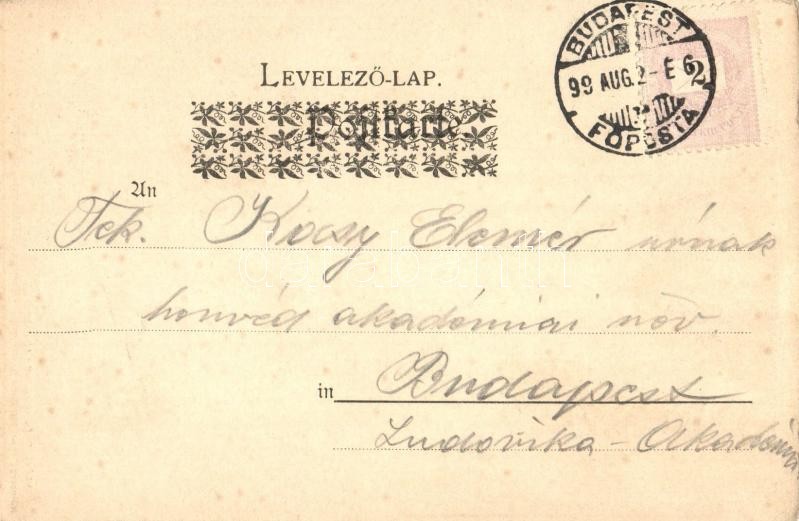 BUDAPEST
99 AUG. 2 - E 6
FŐPOSTA
2
LEVELEZŐ-LAP.
Postkarte.
An
Tek. Kocsy Elemér úrnak
honvéd akadémiai növ.
in Budapest
Ludovika - Akadémia
darabanth